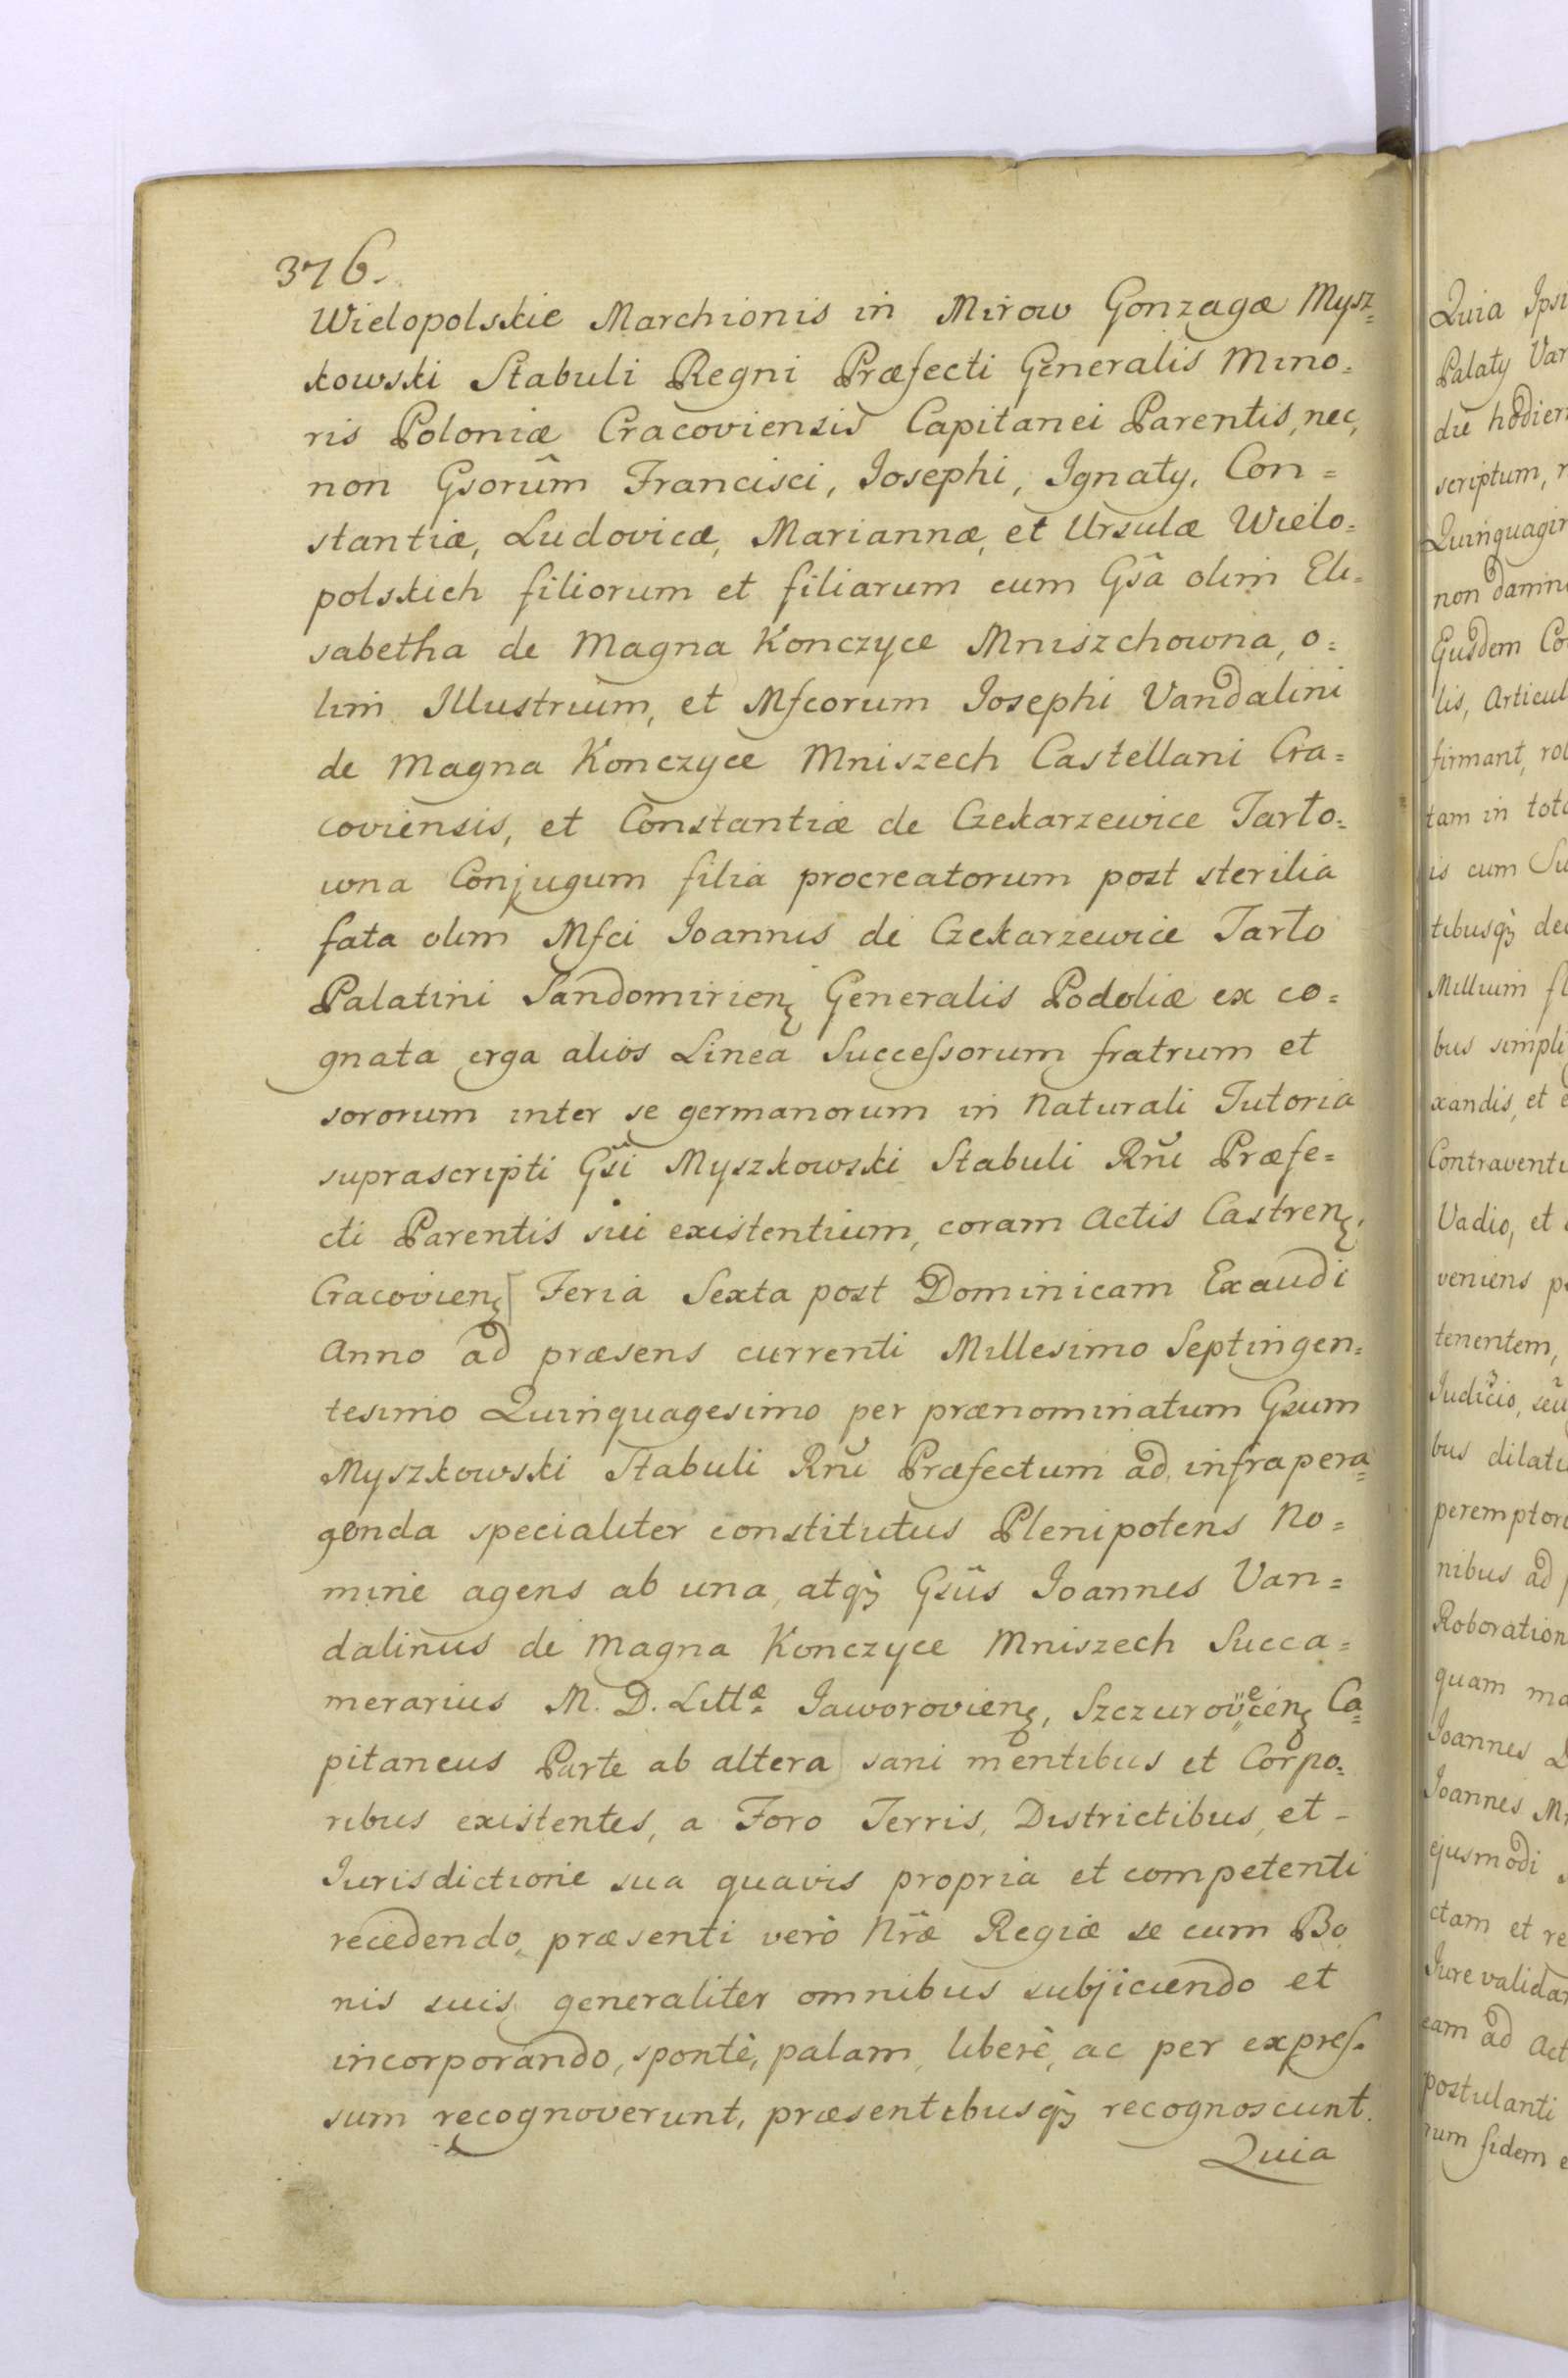 376.
Wielopolskie Marchionis in Mirow Gonzagæ Mysz=
kowski Stabuli Regni Præfecti Generalis Mino=
ris Poloniæ Cracoviensis Capitanei Parentis, nec,
non Gsorum̂ Francisci, Josephi, Ignaty, Con=
stantiæ, Ludovicæ, Mariannæ, et Ursulæ Wielo=
polskich filiorum et filiarum cum Gsâ olim Eli=
sabetha de Magna Konczyce Mniszchowna, o=
lim Illustrium, et Mfcorum Josephi Vandalini
de Magna Konczyce Mniszech Castellani Cra=
coviensis, et Constantiæ de Czekarzewice Tarło=
wna Conjugum filia procreatorum post sterilia
fata olim Mfci Joannis de Czekarzewice Tarło
Palatini Sandomirienʒ Generalis Podoliæ ex co=
gnata erga alios Linea Successorum fratrum et
sororum inter se germanorum in Naturali Tutoria
suprascripti Gs̃i Myszkowski Stabuli Rñi Præfe=
cti Parentis sui existentium, coram Actis Castrenʒ,
Cracovienʒ[ Feria Sexta post Dominicam Exaudi
Anno ad præsens currenti Millesimo Septingen=
tesimo Quinquagesimo per prænominatum Gsum
Myszkowski Stabuli Rñi Præfectum ad infra pera=
genda specialiter constitutus Plenipotens No=
mine agens ab una, atqʒ Gsũs Joannes Van=
dalinus de Magna Konczyce Mniszech Succa=
merarius M. D. Littæ. Jaworovienʒ, Szczurovecenʒ Ca=
pitaneus Parte ab altera] sani mentibus et Corpo=
ribus existentes, a Foro Terris, Districtibus, et -
Jurisdictione sua quavis propria et competenti
recedendo, præsenti verò Nr̃æ Regiæ se cum Bo
nis suis generaliter omnibus subjiciendo et
incorporando, spontè, palam, liberè, ac per expres=
sum recognoverunt, præsentibusqʒ recognoscunt.
Quia
Quia Ipsi
Palaty Var
die hodiern
scriptum, r
Quinquagin
non damni
Ejusdem Co
lis, Articul
firmant, rol
tam in toto
is cum Su
tibusqʒ de
Millium fl
bus simpli
xandis, et e
Contraventi
Vadio, et
veniens p
tenentem,
Judicio, seu
bus dilati
peremptor
nibus ad
Roboration
quam ma
Joannes
Joannes M
ejusmodi
ctam et re
Jure valida
eam ad Act
postulanti
rum fidem e